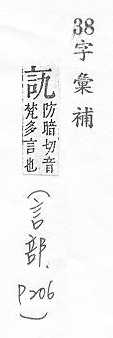 38字彙補
訉
防暗切音
梵多言也
(言部. P206)